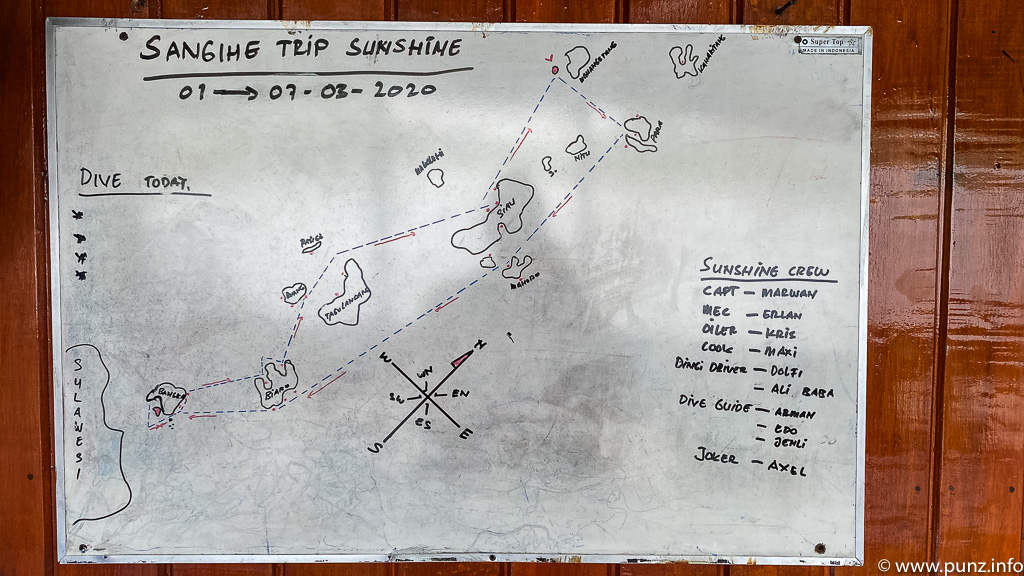 SANGIHE TRIP SUNSHINE
01 → 07-03-2020
Super Top
MADE IN INDONESIA
DIVE TODAY.
PARA
NITU
S.
SIAU
TAGULANDANG
BIARO
BANGKA
SULAWESI
N
W
WN
SW
EN
ES
S
E
SUNSHINE CREW
CAPT - MARWAN
MEC - ERLAN
OILER - KRIS
COOK - MAXI
DINGI DRIVER - DOLFI
- ALI BABA
DIVE GUIDE - ARMAN
- EDO
- JENLI
JOKER - AXEL
© www.punz.info